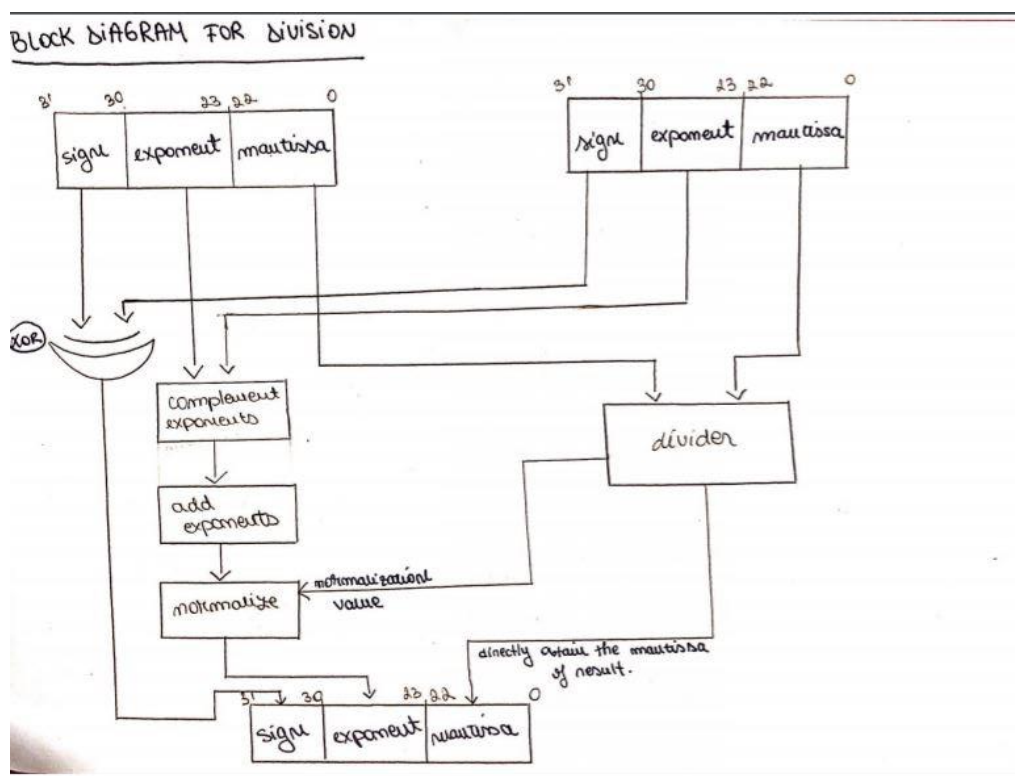 BLOCK DIAGRAM FOR DIVISION
31 30 23 22 0
sign exponent mantissa
31 30 23 22 0
sign exponent mantissa
XOR
complement
exponents
divider
add
exponents
normalization
value
normalize
directly obtain the mantissa
of result.
31 30 23 22 0
sign exponent mantissa